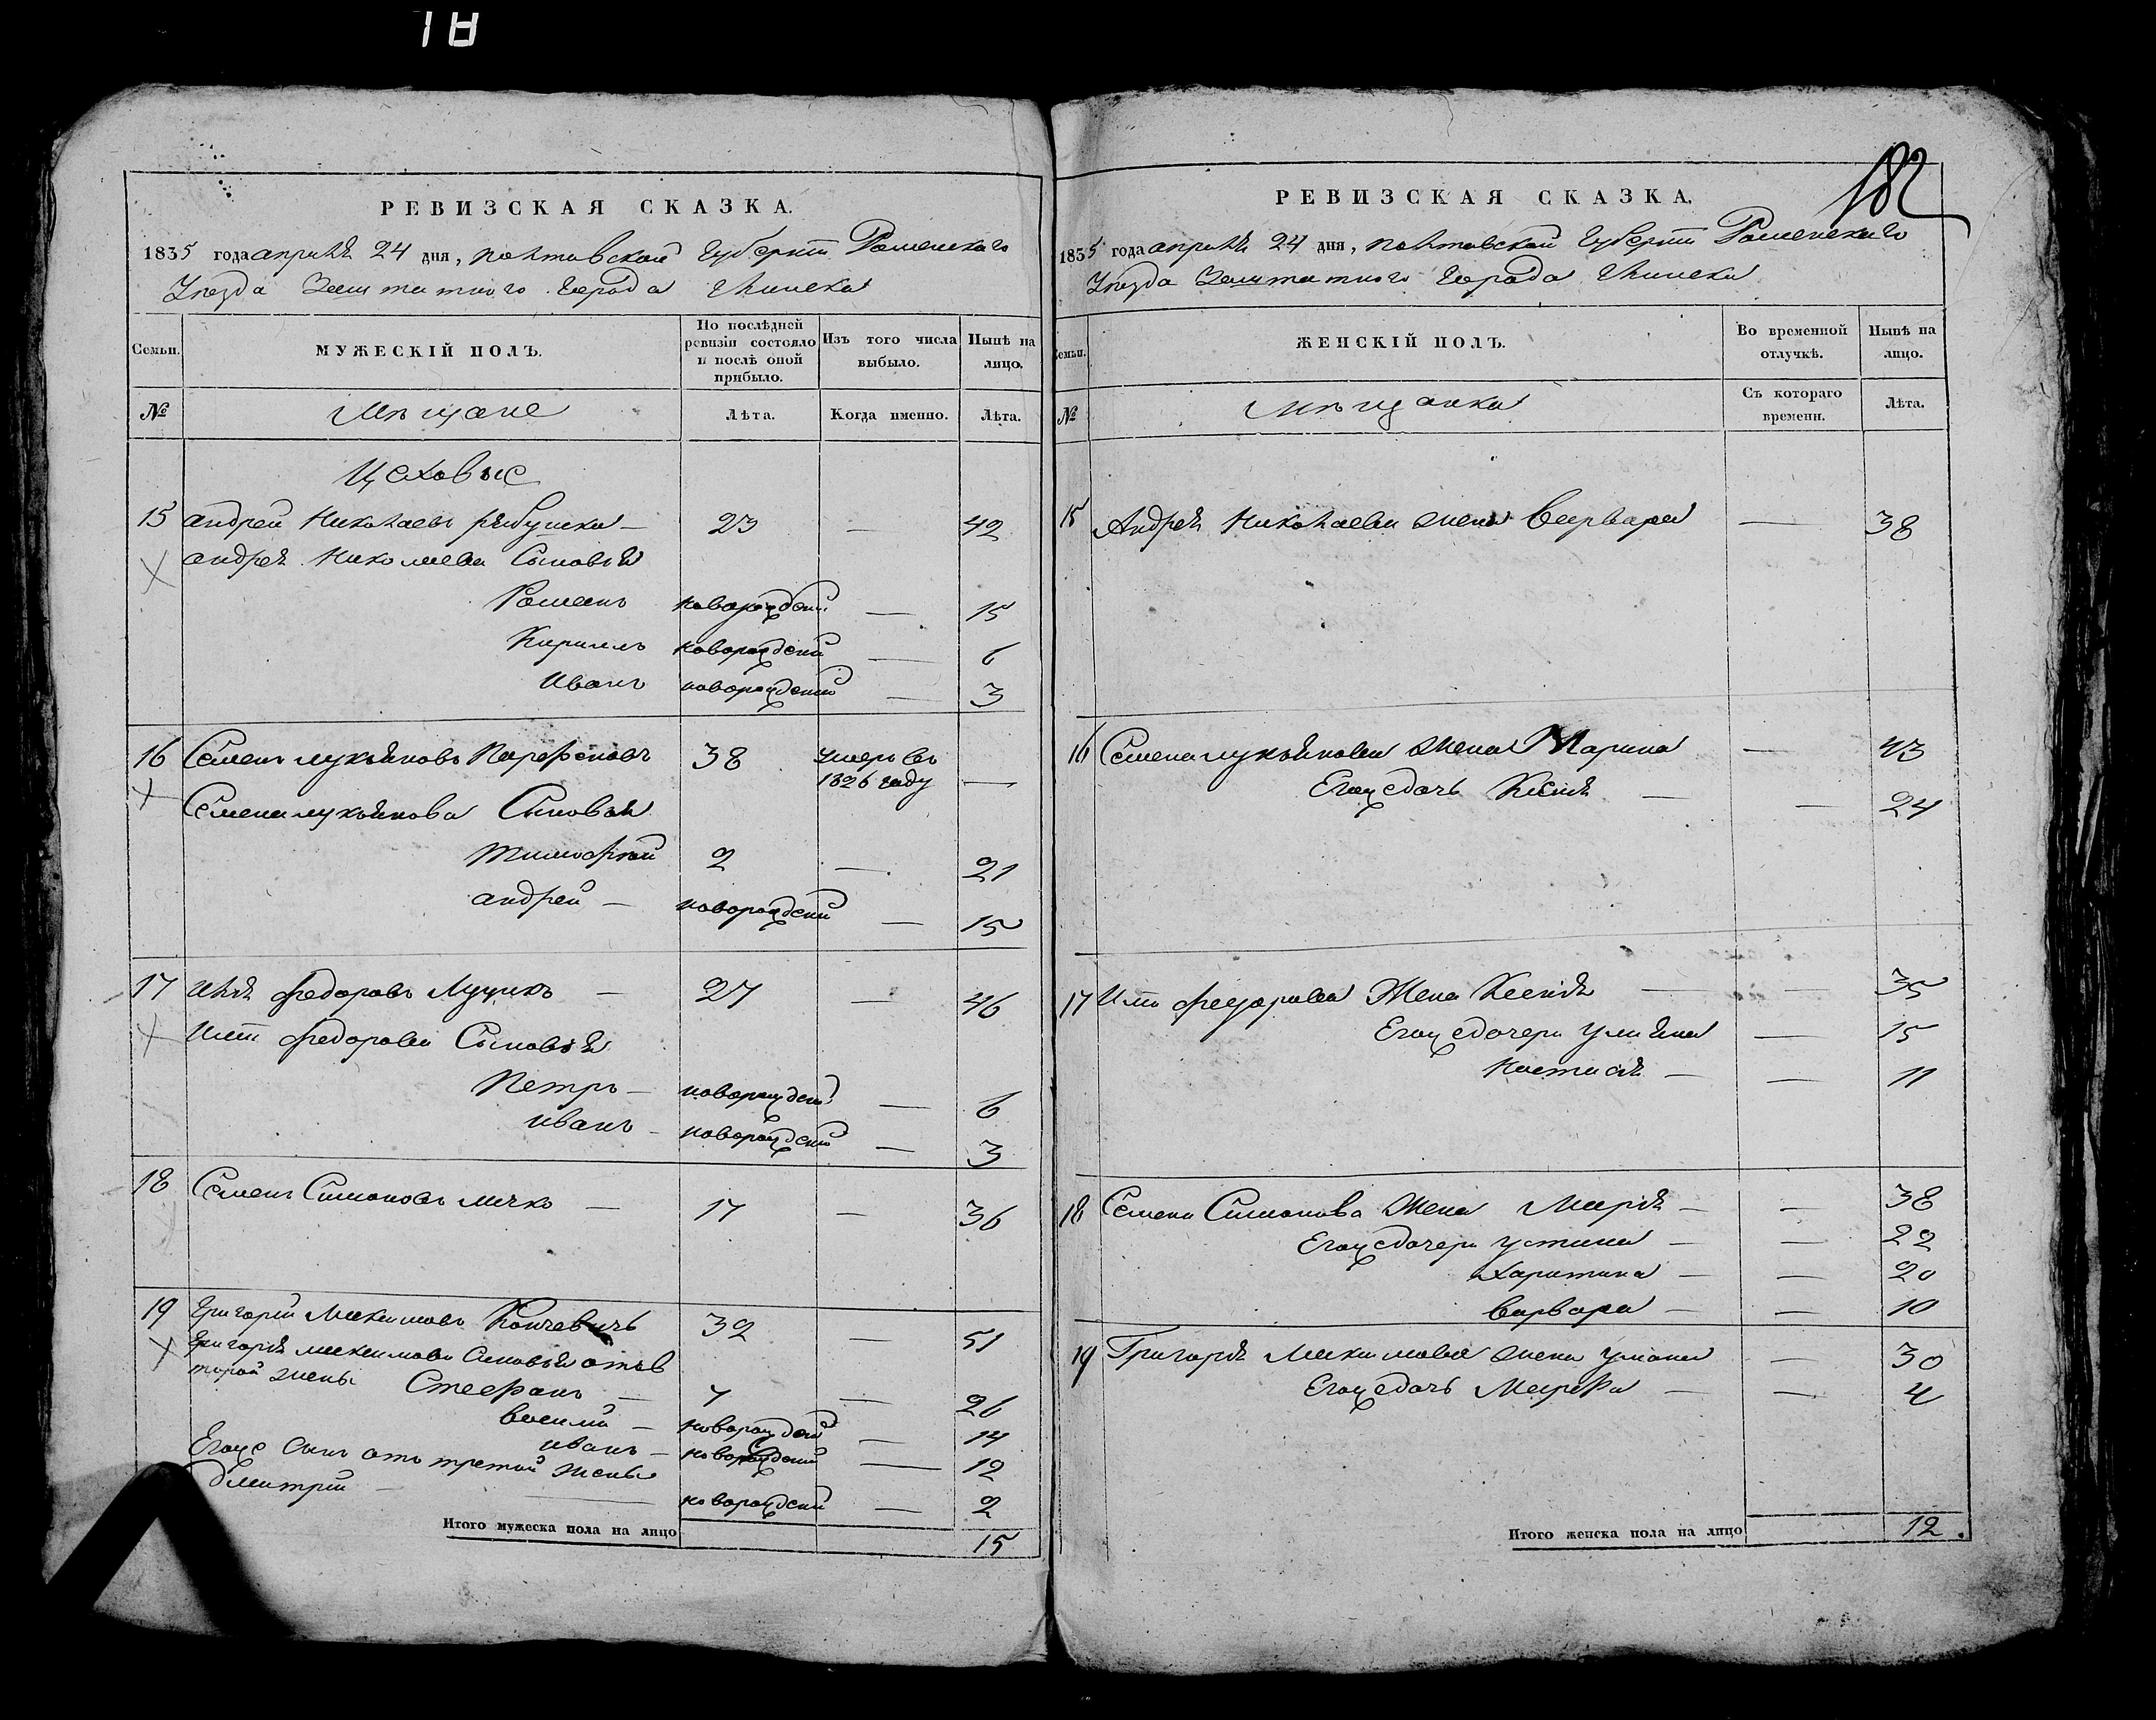 18
РЕВИЗСКАЯ СКАЗКА.
1835 года апрѣля 24 дня, полтавской губерніи Роменскаго
Уезда Заштатного города Глинска
Семьи.
МУЖЕСКІЙ ПОЛЪ.
По послѣдней ревизіи состояло и послѣ оной прибыло.
Изъ того числа выбыло.
Нынѣ на лицо.
№
Мѣщане
Лѣта.
Когда именно.
Лѣта.
Цеховые
15 андрей Николаевъ — 23 — 42
андрея Николаева Сыновья
Романъ новорожденій — 15
Кирилъ новорожденій — 6
Иванъ новорожденій — 3
16 Семенъ лукьяновъ Парфеновъ 38 умеръ въ 1826 году —
Семена лукьянова Сыновья
Тимофѣй 2 — 21
андрей — новорожденій — 15
17 Илья федоровъ Луцикъ — 27 — 46
Ильи федорова Сыновья
Петръ — новорожденій — 6
иванъ — новорожденій — 3
18 Семенъ Симоновъ — 17 — 36
19 Григорій Максимовъ 32 — 51
Григорія максимова Сыновья отъ в
торой жены Стефанъ — 7 — 26
василій — новорожденій — 14
иванъ — новорожденій — 12
Егоже Сынъ отъ третей жены
дмитрій — новорожденій — 2
Итого мужеска пола на лицо 15
182
РЕВИЗСКАЯ СКАЗКА.
1835 года апрѣля 24 дня, полтавской губерніи Роменскаго
Уезда Заштатного города Глинска
Семьи.
ЖЕНСКІЙ ПОЛЪ.
Во временной отлучкѣ.
Нынѣ на лицо.
№
Мѣщанки
Съ котораго времени.
Лѣта.
15 Андрея Николаева жена Варвара — 38
16 Семена лукьянова жена Марина — 43
Егоже дочь Ксенія — — 24
17 Ильи федорова Жена Ксенія — — 35
Егоже дочери Ульяна — 15
Настасія — — 11
18 Семена Симонова Жена Марія — — 38
Егоже дочери устина — — 22
Харитина — — 20
варвара — — 10
19 Григорія Максимова жена — 30
Егоже дочь Марфа — — 4
Итого женска пола на лицо 12.